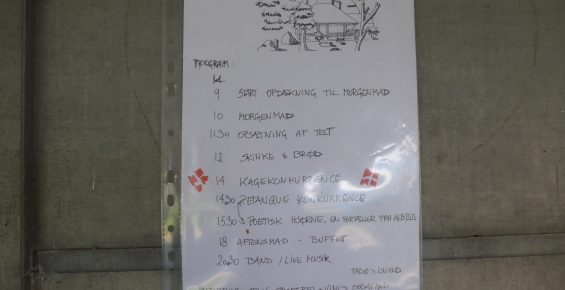 PROGRAM:
kl.
9 START OPDÆKNING TIL MORGENMAD
10 MORGENMAD
11.30 OPSÆTNING AF TELT
12 SKINKE & BRØD
14 KAGEKONKURRENCE
14.30 PETANQUE KONKURRENCE
15.30 POETISK HJØRNE,
18 AFTENSMAD - BUFFET
20.30 BAND / LIVE MUSIK